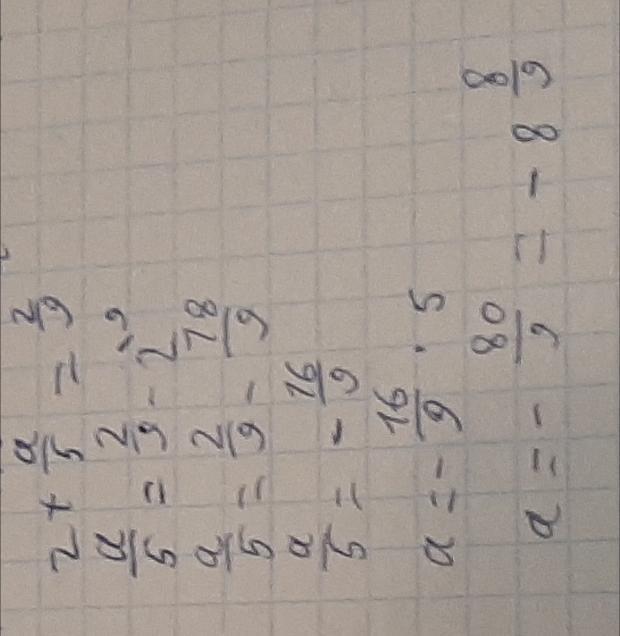 2 + a/5 = 2/9
a/5 = 2/9 - 2\9
a/5 = 2/9 - 18/9
a/5 = - 16/9
a = - 16/9 · 5
a = - 80/9 = - 8 8/9